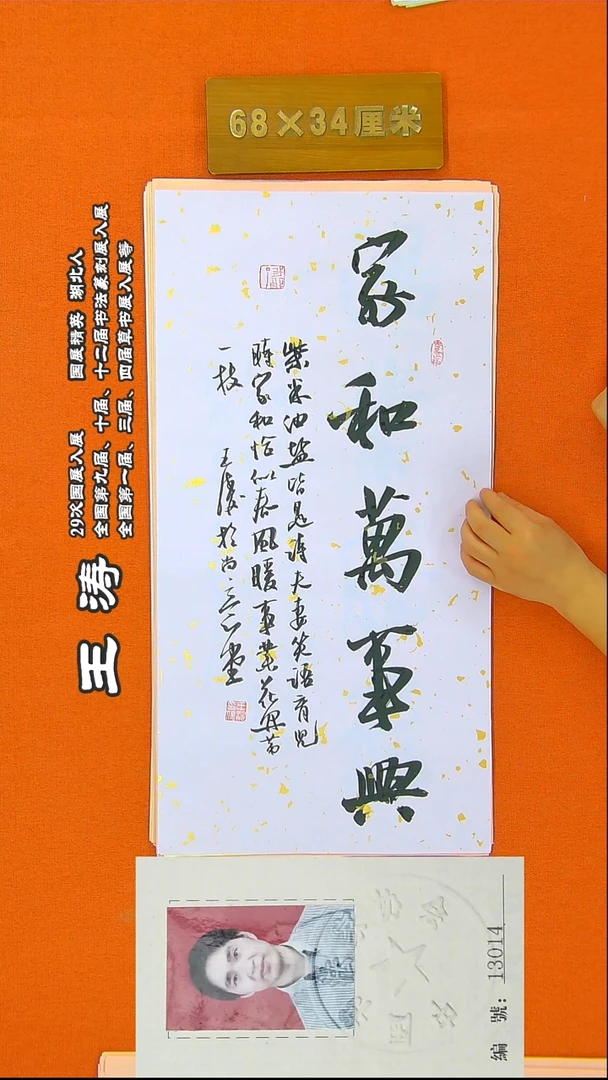 68×34厘米
家和萬事興
柴米油盐皆是诗夫妻笑语育儿
時家和恰似春風暖事業花開第
一枝 王涛於尚堂
王涛
29次国展入展 国展精英 湖北人
全国第九届、十届、十二届书法篆刻展入展
全国第一届、三届、四届草书展入展等
編號：13014